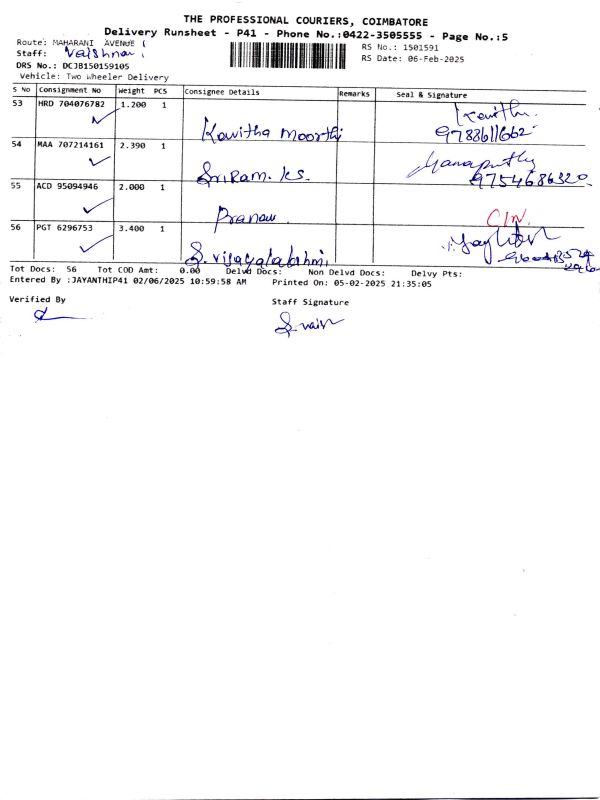 THE PROFESSIONAL COURIERS, COIMBATORE
Delivery Runsheet - P41 - Phone No.:0422-3505555 - Page No.:5
Route: MAHARANI AVENUE (
Staff: Vaishnavi
RS No.: 1501591
DRS No.: DCJB150159105
RS Date: 06-Feb-2025
Vehicle: Two Wheeler Delivery
S No Consignment No Weight PCS Consignee Details Remarks Seal & Signature
53 HRD 704076782 1.200 1 Kavitha Moorthi Kavitha.
9788611662
54 MAA 707214161 2.390 1 Sriram. KS.
9754686320
55 ACD 95094946 2.000 1 Pranav
56 PGT 6296753 3.400 1 S. Vijayalakshmi
Tot Docs: 56 Tot COD Amt: 0.00 Delvd Docs: Non Delvd Docs: Delvy Pts:
Entered By :JAYANTHIP41 02/06/2025 10:59:58 AM Printed On: 05-02-2025 21:35:05
Verified By Staff Signature